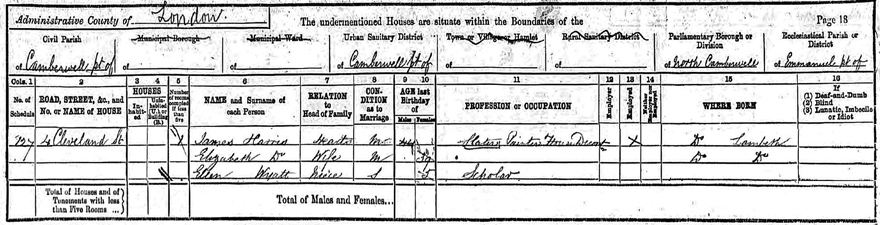 Administrative County of London.
The undermentioned Houses are situate within the Boundaries of the
Page 18
Civil Parish
Municipal Borough
Municipal Ward
Urban Sanitary District
Town or Village or Hamlet
Rural Sanitary District
Parliamentary Borough or Division
Ecclesiastical Parish or District
of Camberwell pt of
of
of
of Camberwell pt of
of
of
of North Camberwell
of Emmanuel pt of
Cols. 1 2 3 4 5 6 7 8 9 10 11 12 13 14 15 16
No. of Schedule
ROAD, STREET, &c., and No. or NAME of HOUSE
HOUSES
Inhabited
Uninhabited (U.) or Building (B.)
Number of rooms occupied if less than five
NAME and Surname of each Person
RELATION to Head of Family
CONDITION as to Marriage
AGE last Birthday of
Males
Females
PROFESSION or OCCUPATION
Employer
Employed
Neither Employer nor Employed
WHERE BORN
If
(1) Deaf-and-Dumb
(2) Blind
(3) Lunatic, Imbecile or Idiot
127 4 Cleveland St James Harris M Painter House X Do Lambeth
Elizabeth Do Wife M 39 Do Do
Ellen Wyatt Niece S 5 Scholar
Total of Houses and of Tenements with less than Five Rooms ...
Total of Males and Females...